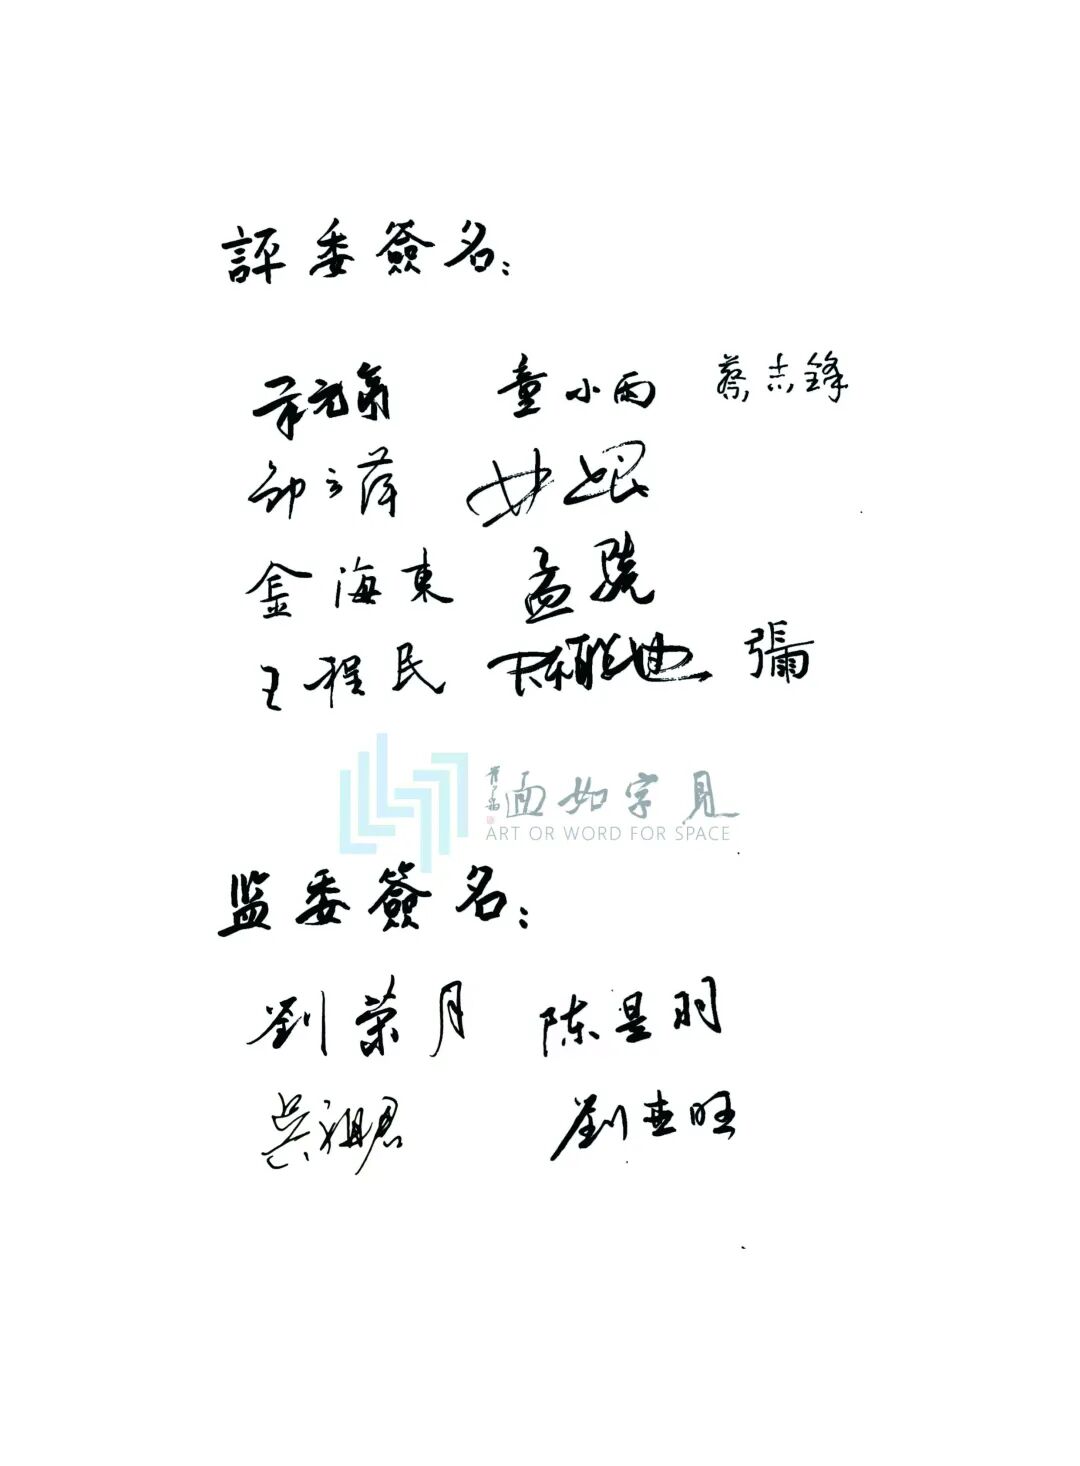 評委簽名：
童小雨 蔡志鋒
邵云萍
金海東 孟驍
王程民 張爾
見字如面
ART OR WORD FOR SPACE
监委簽名：
劉榮月 陈昱羽
吳祖君 劉世旺